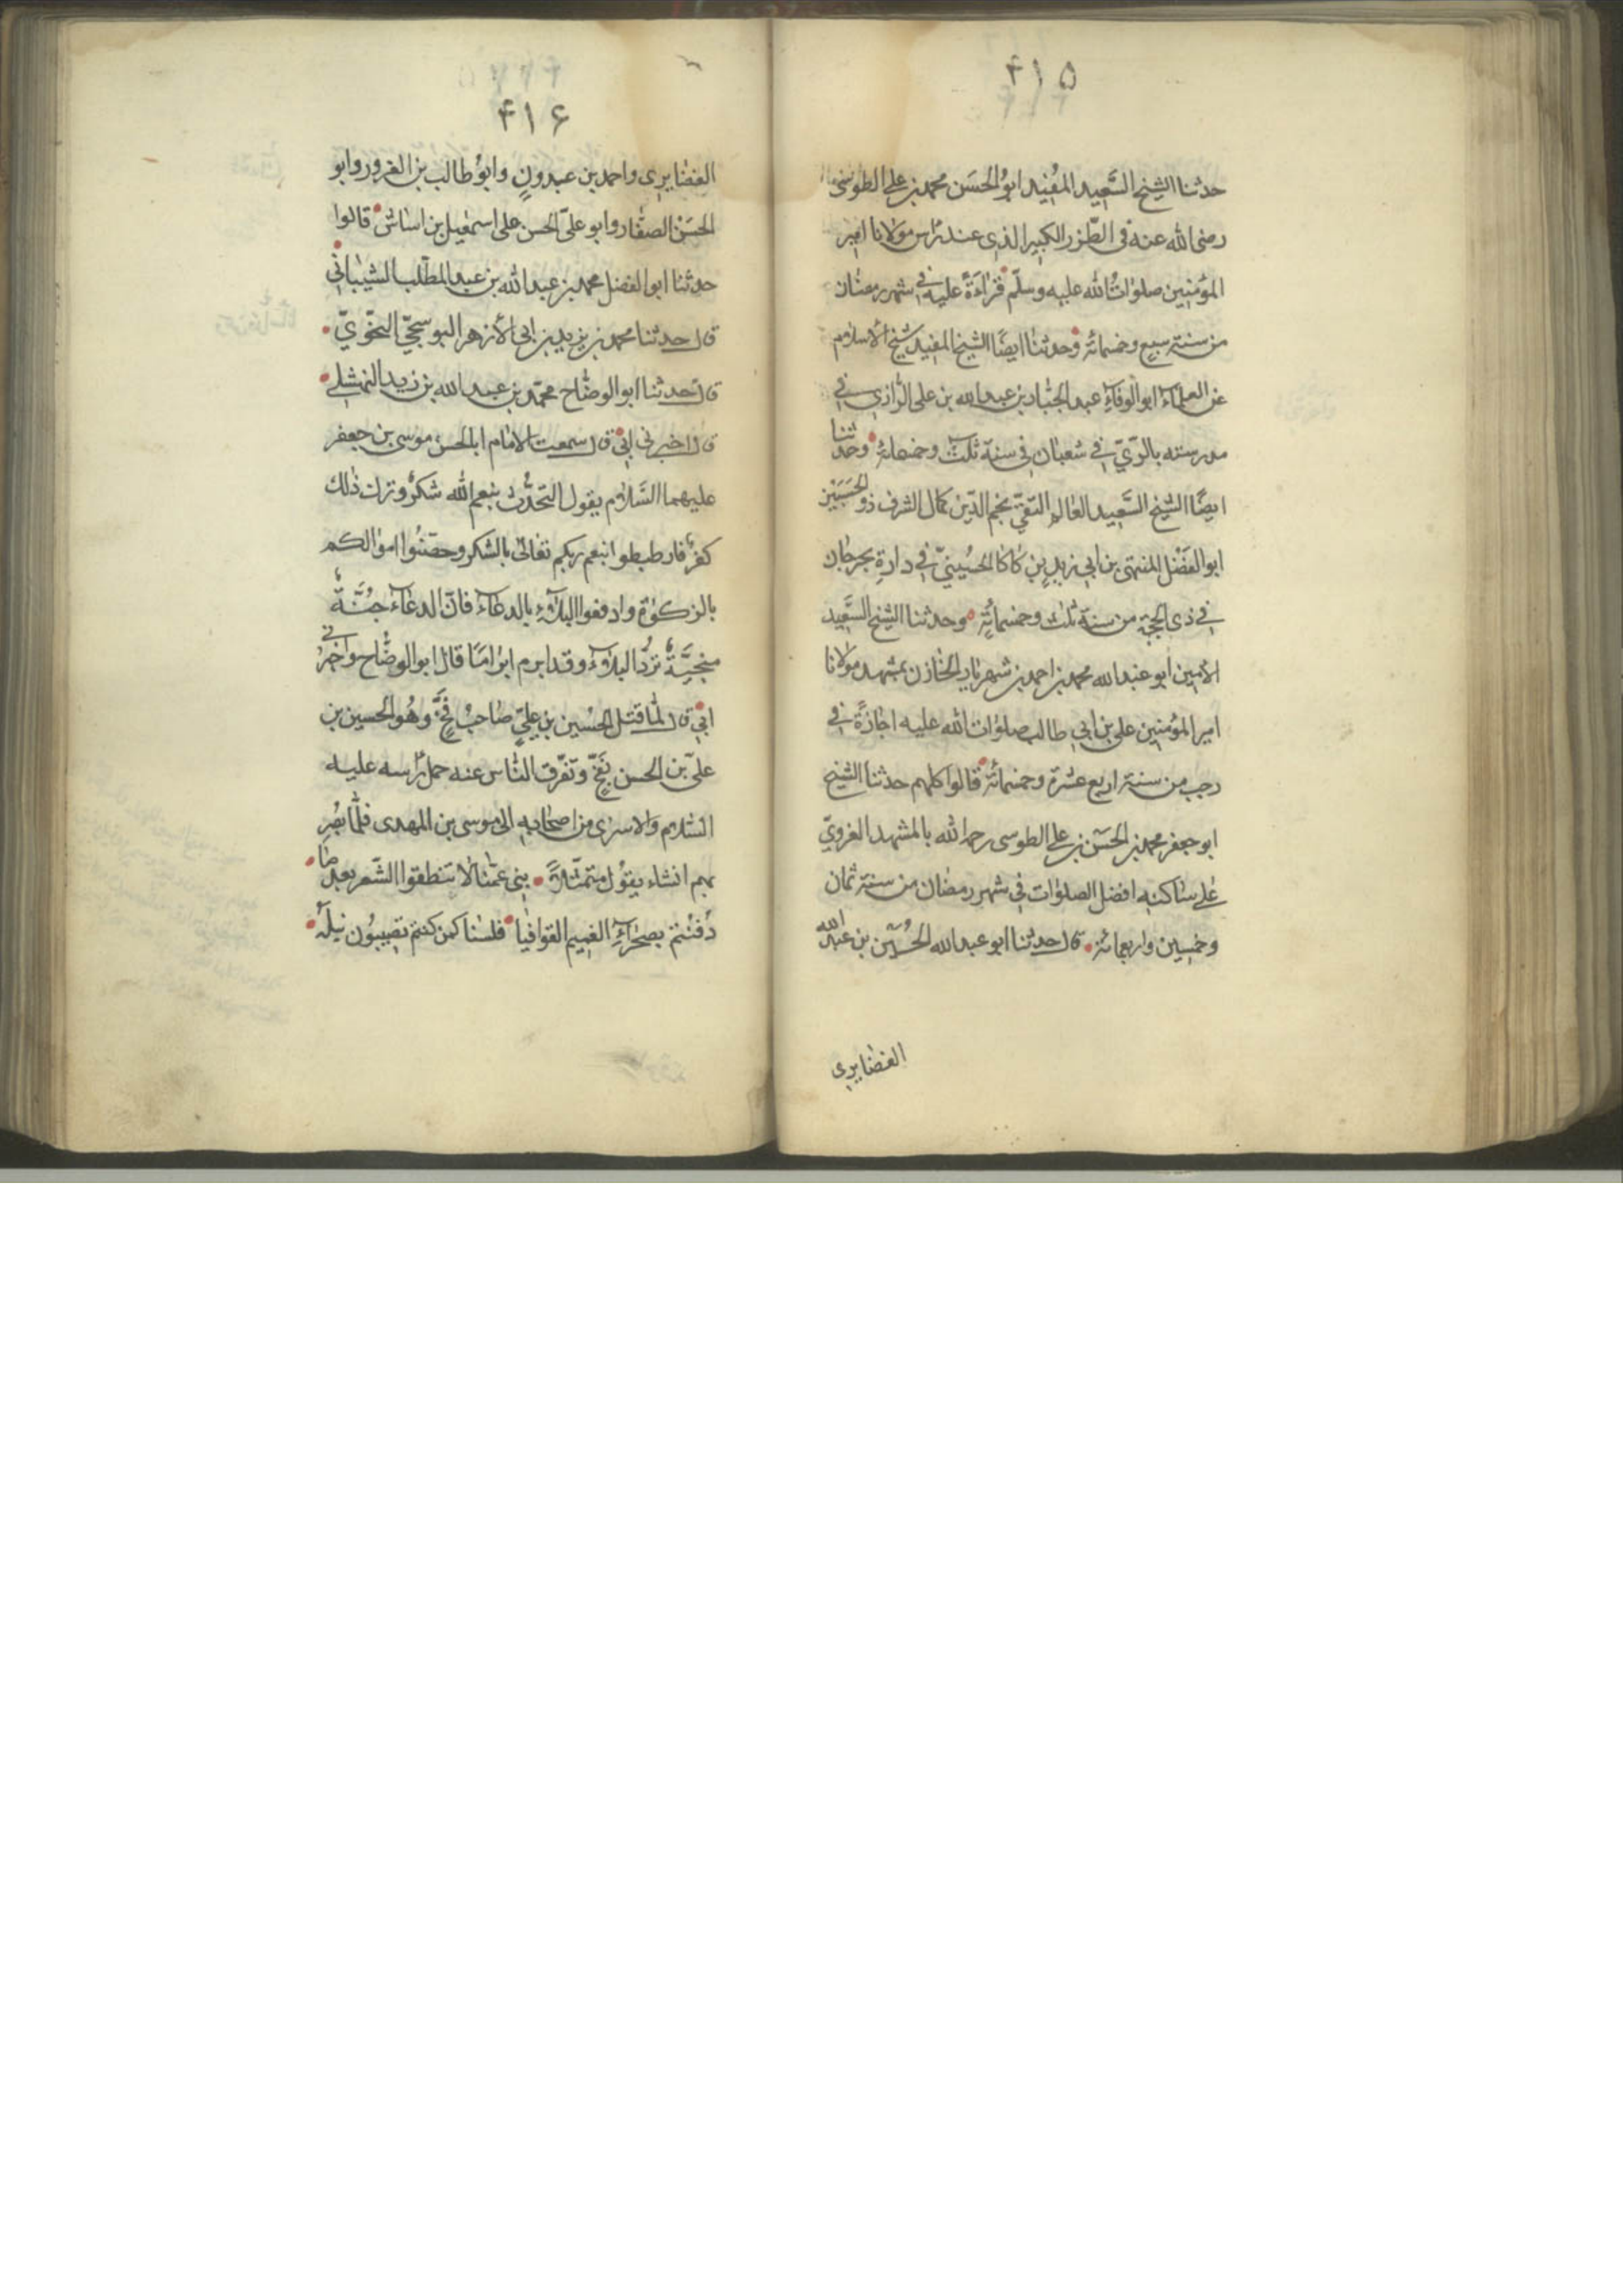 ۴۱۵
حدثنا الشيخ السَّعِيد المفُيد ابوُ الحسَن محمد بن علي الطوسى
رضى الله عنه فى الطّرز الكبير الذى عند راس مولانا امير
المؤمنين صلوٰاتُ الله عليه وسلّم قراءَةً عليه في شهر رمضان
من سنة سبع وخمسائة وحدثنا ايضًا الشيخ المفيد شيخ الاسلام
عن العلماء ابو الوفاء عبد الجبّار بن عبد الله بن على الرّازى في
مدرسته بالرّيّ في شعبان فى سنة ثلث وخمسمائة وحدثنا
ايضًا الشيخ السَّعِيد العٰالم التقىّ نجم الدّين كمال الشرف ذو الحسَبَيْن
ابو الفضْل المنتهى بن ابي زيدٍ بن كاكا الحسُينىّ في دارةِ بجرجان
في ذى الحجة من سنة ثلث وخمسمائةٍ وحدثنا الشيخ السَّعِيد
الامين ابو عبد الله محمد بن احمد بن شهريار الخازن بمشهد مولانا
امير المؤمنين على بن ابي طالب صلوات الله عليه اجازةً في
رجب من سنة اربع عشرة وخمسمائة قالوا كلهم حدثنا الشيخ
ابو جعفر محمد بن الحسَن بن علي الطوسى رحمه الله بالمشهد الغروىّ
علي سٰاكنه افضل الصلوٰات في شهر رمضان من سنة ثمان
وخمسين واربعمائة قال حدثنا ابو عبد الله الحُسَين بن عبد الله
الغضٰايرى
۴۱۶
الغضٰايرى واحمد بن عبدونٍ وابوُ طالب بن الغرور وابو
الحسَنْ الصفّار وابو علىّ الحسن على اسمٰعيل بن اشناس قالوا
حدثنا ابو الفضل محمد بن عبد الله بن عبد المطّلب الشيبٰانى
قال حدثنا محمد بن يزيد بن ابى الأزهر البوسنجىّ النحّوىّ
قال حدثنا ابو الوضّاح محمّد بن عبد الله بن زيد النهشلى
قال اخبرنى ابى قال سمعت الامٰام ابا الحسن موسى بن جعفر
عليهما السَّلام يقول التحدُّث بنعم الله شكرٌ وترك ذٰلك
كفرٌ فارطبطوا نبعم ربكم تعٰالى بالشكر وحصّنُوا اموٰالكم
بالزكوٰة وادفعوا البلآء بالدعآء فانّ الدعآء جُنَّةٌ
منجيَّةٌ تردُّ البلآء وقد ابرم ابرٰامًا قال ابو الوضّاح واخبرنى
ابى قال لمّا قتل الحسُين بن علىّ صٰاحبُ فخٍّ وهُو الحسين بن
علىّ بن الحسن بفخّ وتفرّق النّاس عنه حمل رأسه عليه
السّلام والاسرٰى من اصحٰابه الى موسى بن المهدى فلمّا بصُر
بهم انشاء يقوُل متمثّلاً بنى عمّنٰا لا تنطقوا الشّعر بعد ما
دُفنْتم بصحرٰآءِ الغميم القوافيٰا فلسنٰا كمن كنتم تصيبوُن نيلهُ